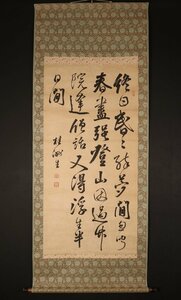 終日昏々酔夢間忽聞
春盡強登山因過竹
院逢僧話又得浮生半
日閒